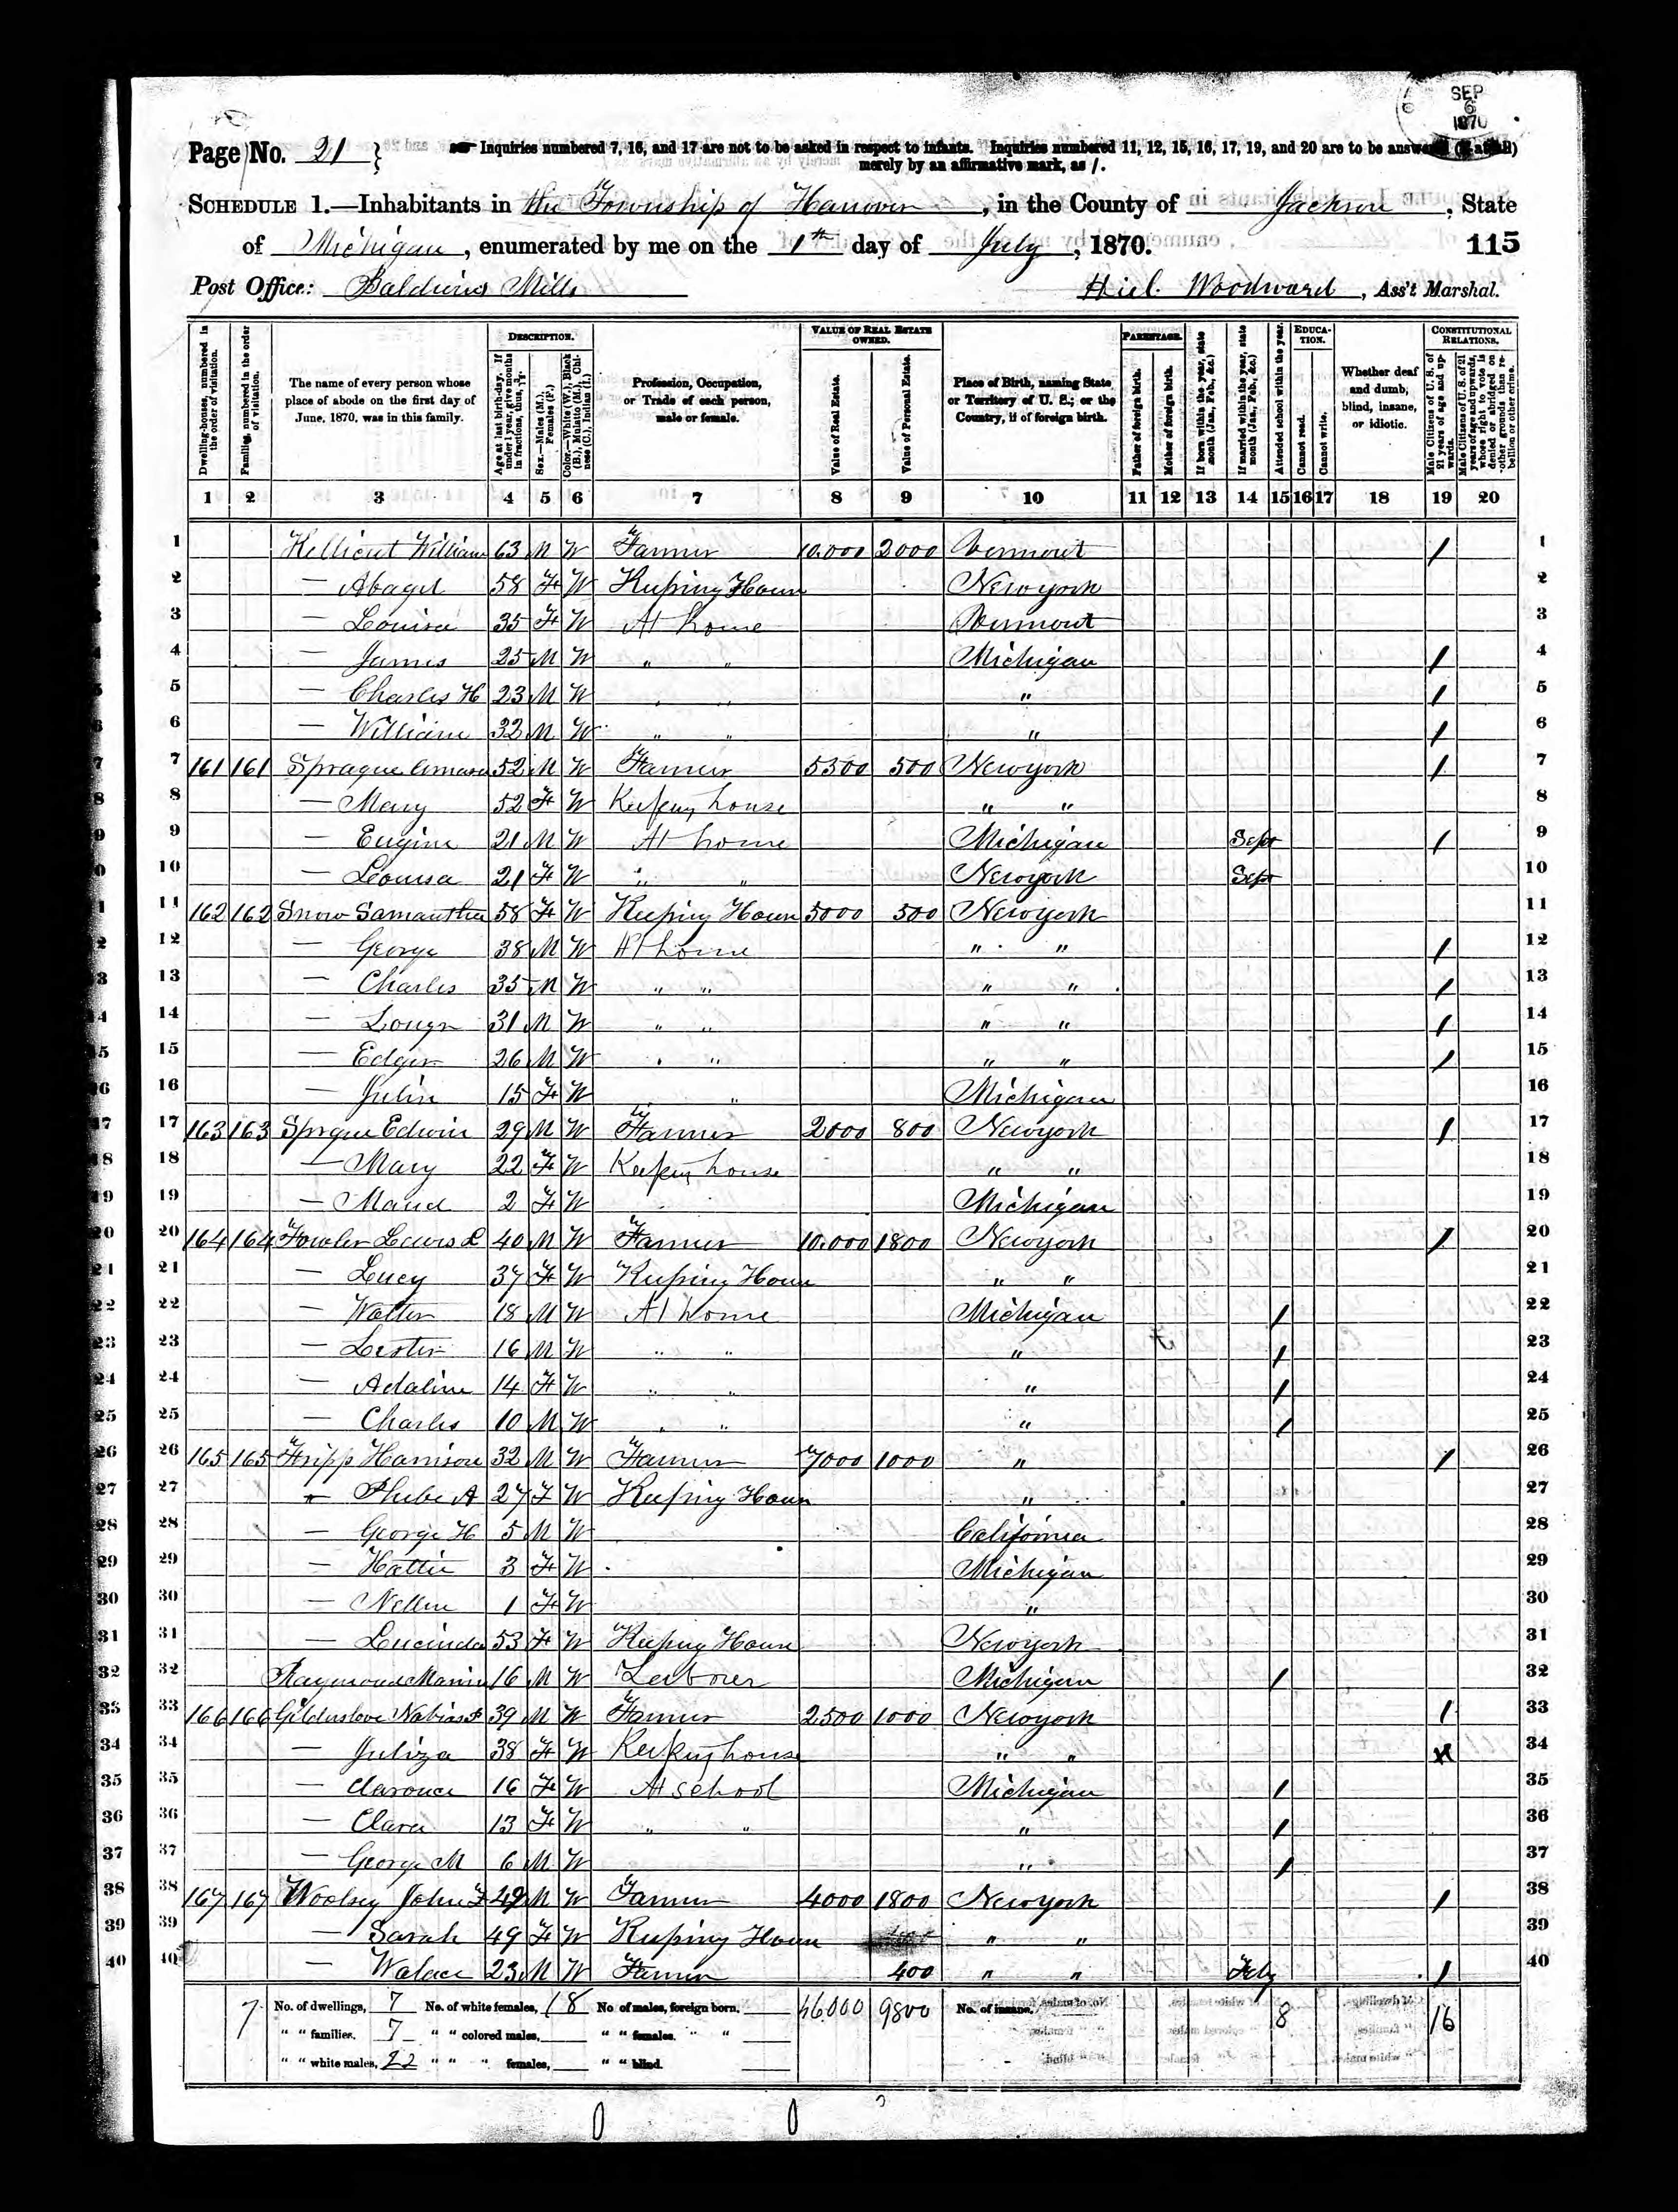 SEP
6
1870
Page No. 21 } Inquiries numbered 7, 16, and 17 are not to be asked in respect to infants. Inquiries numbered 11, 12, 15, 16, 17, 19, and 20 are to be answered (if at all)
merely by an affirmative mark, as /.
SCHEDULE 1.—Inhabitants in the Township of Hanover, in the County of Jackson, State
of Michigan, enumerated by me on the 1th day of July, 1870. 115
Post Office: Baldwins Mills Hiel. Woodward, Ass't Marshal.
DESCRIPTION. VALUE OF REAL ESTATE OWNED. PARENTAGE. EDUCATION. CONSTITUTIONAL RELATIONS.
Dwelling-houses, numbered in the order of visitation.
Families, numbered in the order of visitation.
The name of every person whose place of abode on the first day of June, 1870, was in this family.
Age at last birth-day. If under 1 year, give months in fractions, thus, 3/12.
Sex.—Males (M.), Females (F.)
Color.—White (W.), Black (B.), Mulatto (M.), Chinese (C.), Indian (I.)
Profession, Occupation, or Trade of each person, male or female.
Value of Real Estate.
Value of Personal Estate.
Place of Birth, naming State or Territory of U. S.; or the Country, if of foreign birth.
Father of foreign birth.
Mother of foreign birth.
If born within the year, state month (Jan., Feb., &c.)
If married within the year, state month (Jan., Feb., &c.)
Attended school within the year.
Cannot read.
Cannot write.
Whether deaf and dumb, blind, insane, or idiotic.
Male Citizens of U. S. of 21 years of age and upwards.
Male Citizens of U. S. of 21 years of age and upwards, whose right to vote is denied or abridged on other grounds than rebellion or other crime.
1 2 3 4 5 6 7 8 9 10 11 12 13 14 15 16 17 18 19 20
1 Hellicut William 63 M W Farmer 10.000 2000 Vermont / 1
2 — Abagil 58 F W Keeping House New york 2
3 — Louisa 35 F W At home Vermont 3
4 — James 25 M W " " Michigan / 4
5 — Charles H 23 M W " " " / 5
6 — William 32 M W " " " / 6
7 161 161 Sprague 52 M W Farmer 5300 500 New york / 7
8 — Mary 52 F W Keeping house " " 8
9 — Eugine 21 M W At home Michigan Sept / 9
10 — Louisa 21 F W " " New york Sept 10
11 162 162 Snow Samantha 58 F W Keeping House 5000 500 New york 11
12 — George 38 M W At home " " / 12
13 — Charles 35 M W " " " " / 13
14 — 31 M W " " " " / 14
15 — Edger 26 M W " " " " / 15
16 — Julia 15 F W " Michigan 16
17 163 163 Sprgue Edwin 29 M W Farmer 2000 800 New york / 17
18 — Mary 22 F W Keeping house " " 18
19 — Maud 2 F W Michigan 19
20 164 164 Fowler Lewis L 40 M W Farmer 10.000 1800 New york / 20
21 — Lucy 37 F W Keeping House " " 21
22 — Walter 18 M W At home Michigan / 22
23 — Lester 16 M W " " " / 23
24 — Adaline 14 F W " " " / 24
25 — Charles 10 M W " " " / 25
26 165 165 Fripp Harrison 32 M W Farmer 7000 1000 " / 26
27 — Phebe A 27 F W Keeping House " 27
28 — George H 5 M W California 28
29 — Hattie 3 F W Michigan 29
30 — Nellie 1 F W " 30
31 — Lucinda 53 F W Keeping House New york 31
32 Raymond 16 M W Laborer Michigan / 32
33 166 166 Gildersleve 39 M W Farmer 2500 1000 New york / 33
34 — Juliza 38 F W Keeping house " " 34
35 — Clarence 16 F W At school Michigan / 35
36 — Clara 13 F W " " " / 36
37 — George M 6 M W " / 37
38 167 167 Woolsey John F 49 M W Farmer 4000 1800 New york / 38
39 — Sarah 49 F W Keeping House " " 39
40 — Walace 23 M W Farmer 400 " " July / 40
7 No. of dwellings, 7 No. of white females, 18 No. of males, foreign born, 46.000 9800 No. of insane, 8 16
" " families, 7 " " colored males, " " females, " "
" " white males, 22 " " " females, " " blind,